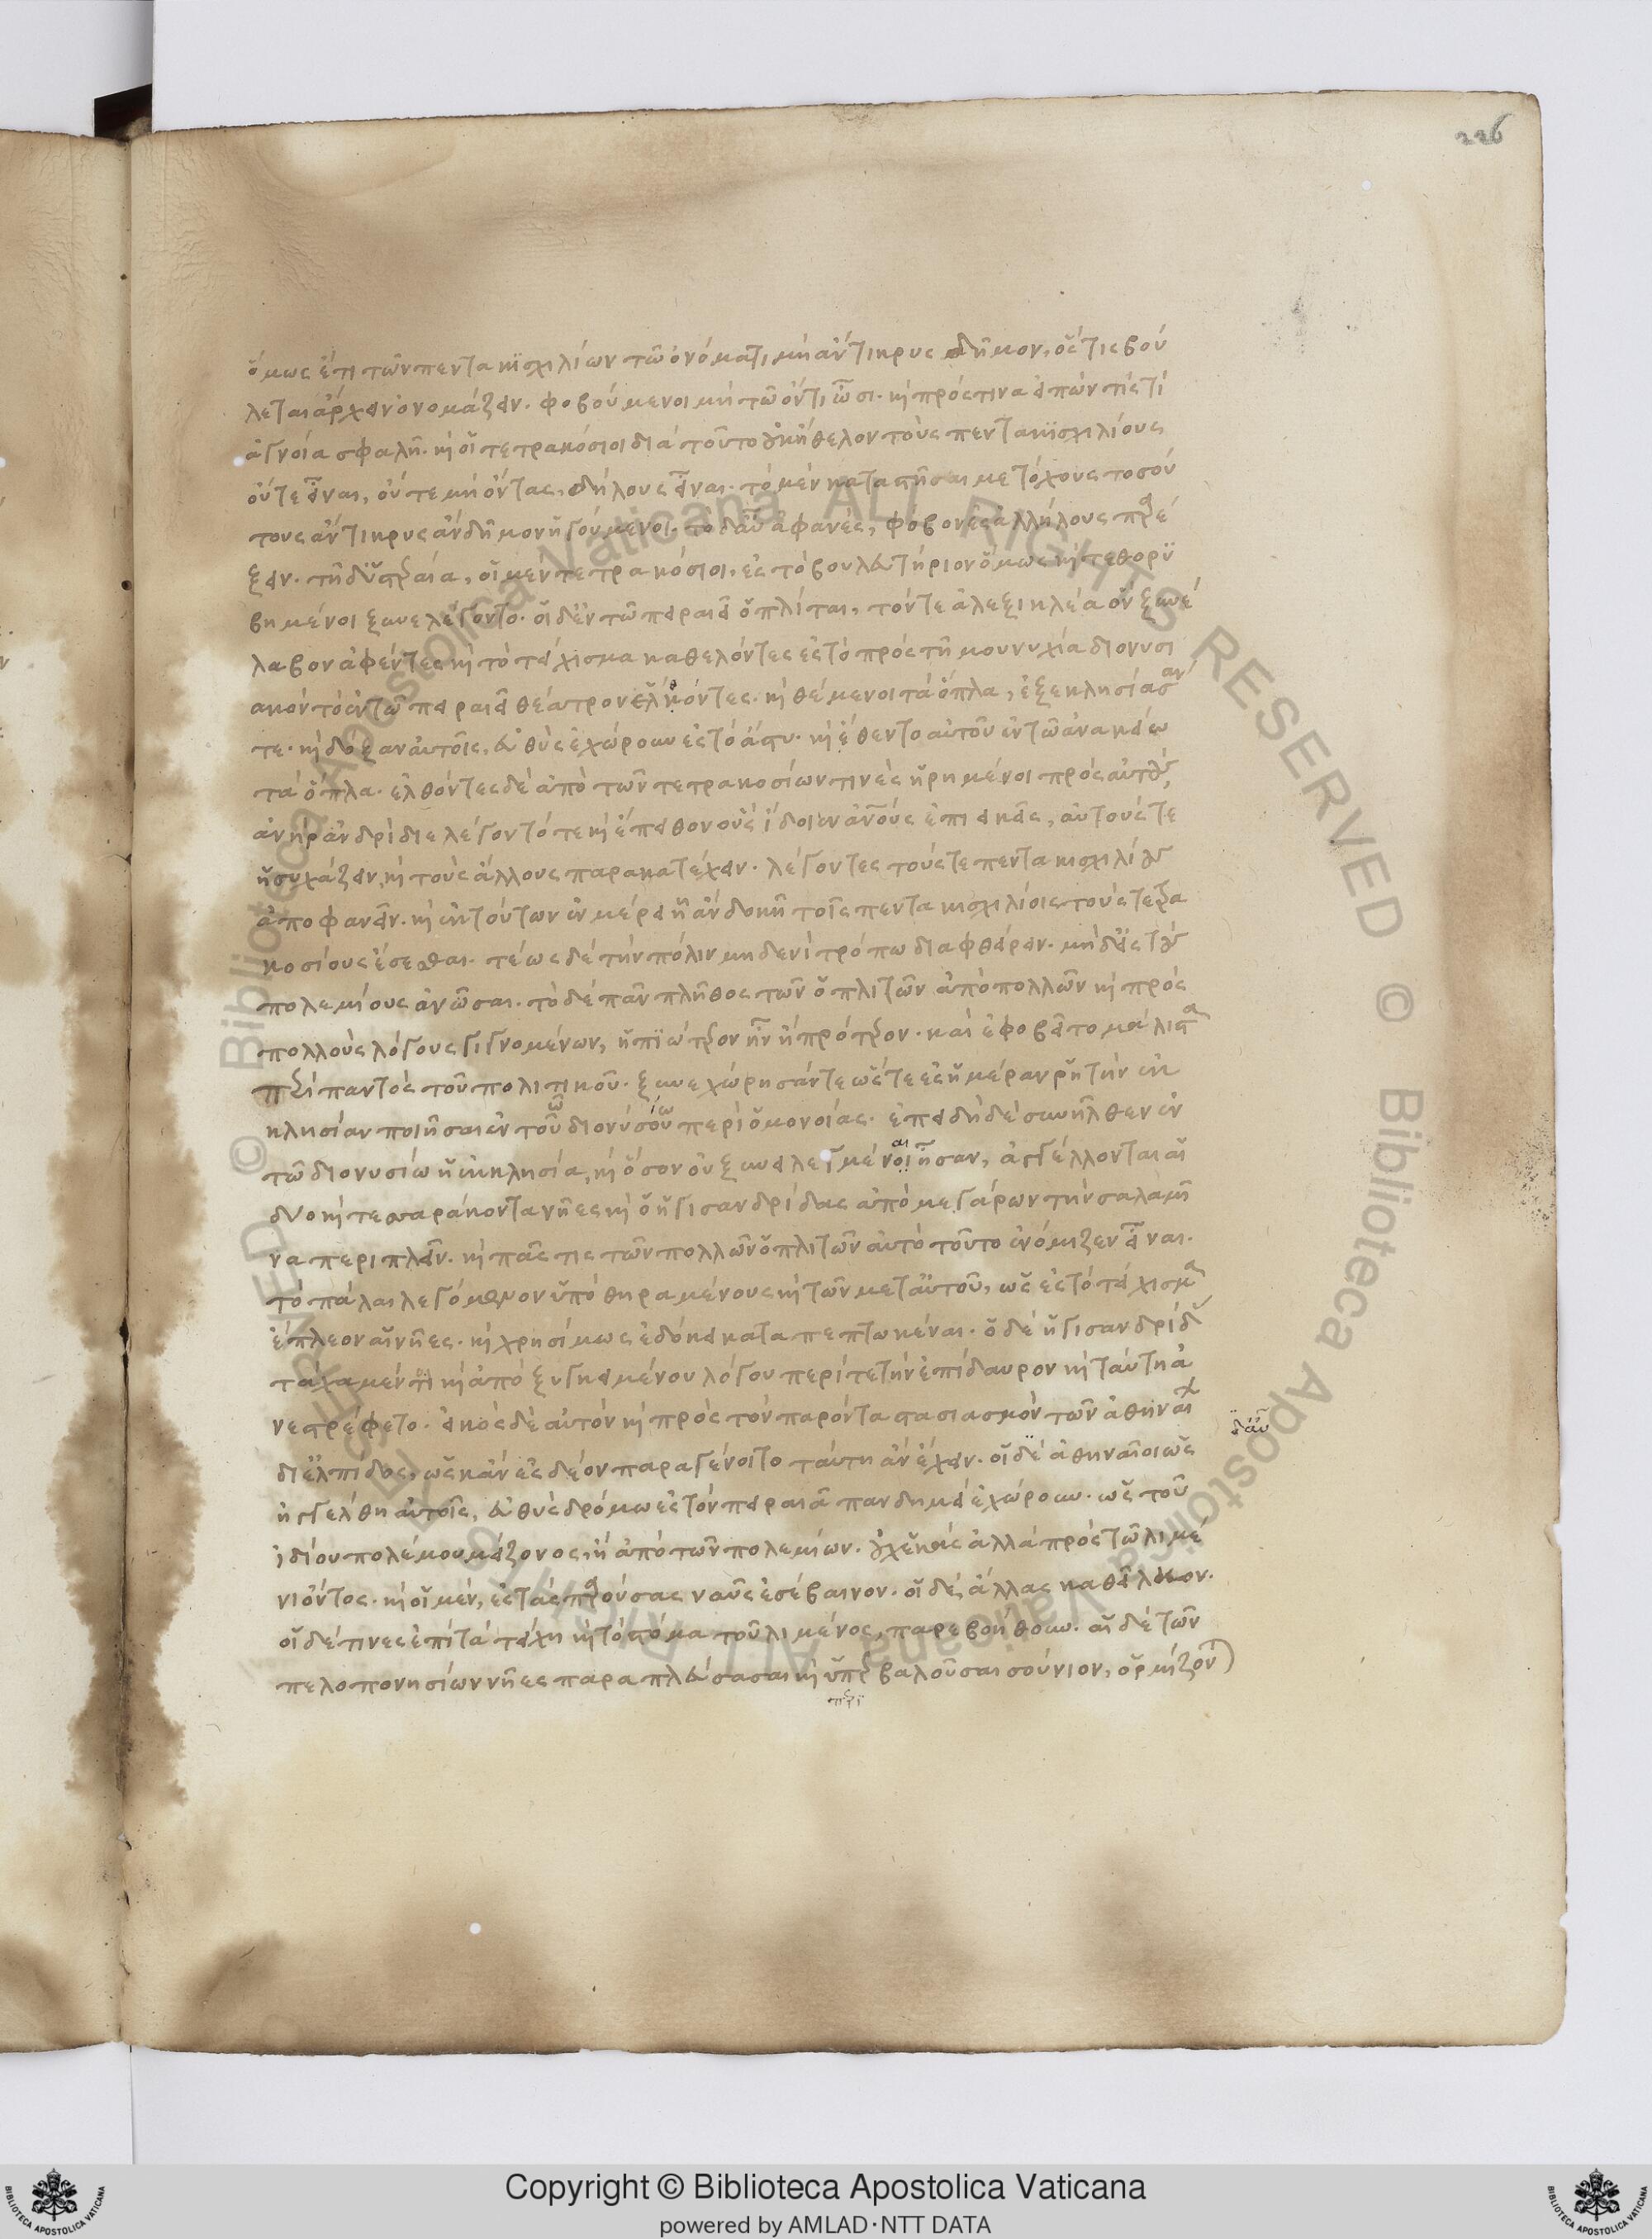 226
ὅμως ἔτι τῶν πεντακισχιλίων τῶ ὀνόματι μὴ ἄντικρυς δῆμον, ὅστις βού
λεται ἄρχειν ὀνομάζειν. φοβούμενοι μὴ τῶ ὄντι ὦσι. κὶ πρός τινα εἰπών τίς τι
ἀγνοία σφαλῆ. κὶ οἱ τετρακόσιοι διὰ τοῦτο οὐκ ἤθελον τοὺς πεντακισχιλίους
οὔτε εἶναι, οὔτε μὴ ὄντας, δήλους εἶναι. τὸ μὲν καταστῆσαι μετόχους τοσού
τους ἄντικρυς ἂν δῆμον ἡγούμενοι. τὸ δ' αὖ ἀφανὲς, φόβον ἐς ἀλλήλους παρέ
ξειν. τῆ δ' ὑστεραία, οἱ μὲν τετρακόσιοι ἐς τὸ βουλευτήριον ὅμως κὶ τεθορυ
βημένοι ξυνελέγοντο. οἱ δ' ἐν τῶ πειραιεῖ ὁπλῖται, τόν τε ἀλεξικλέα ὃν ξυνέ
λαβον ἀφέντες κὶ τὸ τείχισμα καθελόντες ἐς τὸ πρὸς τῆ μουνυχία διονυσι
ακὸν τὸ ἐν τῶ πειραιεῖ θέατρον ἐλθόντες. κὶ θέμενοι τὰ ὅπλα, ἐξεκλησίασαν
τε. κὶ δόξαν αὐτοῖς, εὐθὺς ἐχώρουν ἐς τὸ ἄστυ. κὶ ἔθεντο αὐτοῦ ἐν τῶ ἀνακείω
τὰ ὅπλα. ἐλθόντες δὲ ἀπὸ τῶν τετρακοσίων τινὲς ἡρημένοι πρὸς αὐτοὺς,
ἀνὴρ ἀνδρὶ διελέγοντό τε κὶ ἔπειθον οὓς ἴδοιεν ἀνους ἐπιεικεῖς, αὐτούς τε
ἡσυχάζειν, κὶ τοὺς ἄλλους παρακατέχειν. λέγοντες τούς τε πεντακισχιλίους
ἀποφανεῖν. κὶ ἐκ τούτων ἐν μέρει ἧ ἂν δοκῆ τοῖς πεντακισχιλίοις τοὺς τετρα
κοσίους ἔσεσθαι. τέως δὲ τὴν πόλιν μηδενὶ τρόπω διαφθείρειν. μηδ' ἐς τοὺς
πολεμίους ἀνῶσαι. τὸ δὲ πᾶν πλῆθος τῶν ὁπλιτῶν ἀπὸ πολλῶν κὶ πρὸς
πολλοὺς λόγους γιγνομένων, ἠπιώτερον ἦν ἢ πρότερον. καὶ ἐφοβεῖτο μάλιστα
περὶ παντὸς τοῦ πολιτικοῦ. ξυνεχώρησάν τε ὥστε ἐς ἡμέραν ῥητὴν ἐκ
κλησίαν ποιῆσαι ἐν τοῦ διονύσου περὶ ὁμονοίας. ἐπειδὴ δὲ συνῆλθεν ἐν
τῶ διονυσίω ἡ ἐκκλησία, κὶ ὅσον οὐ ξυνειλεγμένοι ἦσαν, ἀγγέλλονται αἱ
δύο κὶ τεσσαράκοντα νῆες κὶ ὁ ἡγισανδρίδας ἀπὸ μεγάρων τὴν σαλαμῖ
να περιπλεῖν. κὶ πᾶς τις τῶν πολλῶν ὁπλιτῶν αὐτὸ τοῦτο ἐνόμιζεν εἶναι.
τὸ πάλαι λεγόμενον ὑπὸ θηραμένους κὶ τῶν μετ' αὐτοῦ, ὡς ἐς τὸ τείχισμα
ἔπλεον αἱ νῆες. κὶ χρησίμως ἐδόκει καταπεπτωκέναι. ὁ δὲ ἡγισανδρίδας
τάχα μέν τι κὶ ἀπὸ ξυγκειμένου λόγου περί τε τὴν ἐπίδαυρον κὶ ταύτη ἀ
νεστρέφετο. εἰκὸς δὲ αὐτὸν κὶ πρὸς τὸν παρόντα στασιασμὸν τῶν ἀθηναίων
δι' ἐλπίδος, ὡς κἂν ἐς δέον παραγένοιτο ταύτη ἀνέχειν. οἱ δὲ ἀθηναῖοι ὡς
δ' αὖ
ἠγγέλθη αὐτοῖς, εὐθὺς δρόμω ἐς τὸν πειραιᾶ πανδημεὶ ἐχώρουν. ὡς τοῦ
ἰδίου πολέμου μείζονος, ἢ ἀπὸ τῶν πολεμίων. οὐχ ἑκὰς ἀλλὰ πρὸς τῶ λιμέ
νι ὄντος. κὶ οἱ μὲν, ἐς τὰς παρούσας ναῦς ἐσέβαινον. οἱ δὲ, ἄλλας καθεῖλκον.
οἱ δέ τινες ἐπὶ τὰ τείχη κὶ τὸ στόμα τοῦ λιμένος, παρεβοήθουν. αἱ δὲ τῶν
πελοπονησίων νῆες παραπλεύσασαι κὶ ὑπερβαλοῦσαι σούνιον, ὁρμίζον
περι
Copyright © Biblioteca Apostolica Vaticana
powered by AMLAD·NTT DATA
© Biblioteca Apostolica Vaticana ALL RIGHTS RESERVED © Biblioteca Apostolica Vaticana ALL RIGHTS RESERVED
BIBLIOTECA APOSTOLICA VATICANA
BIBLIOTECA APOSTOLICA VATICANA